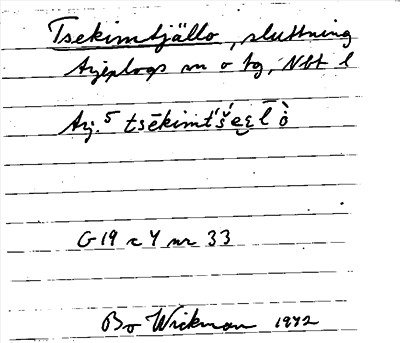 Tsekimtjållo, sluttning
Arjeplogs sn o tg, Nbt l
Arj. 5 tsēkimt́š́ɛɛ̮l̄ ȯ̀
G 19 c 4 nr 33
Bo Wickman 1972